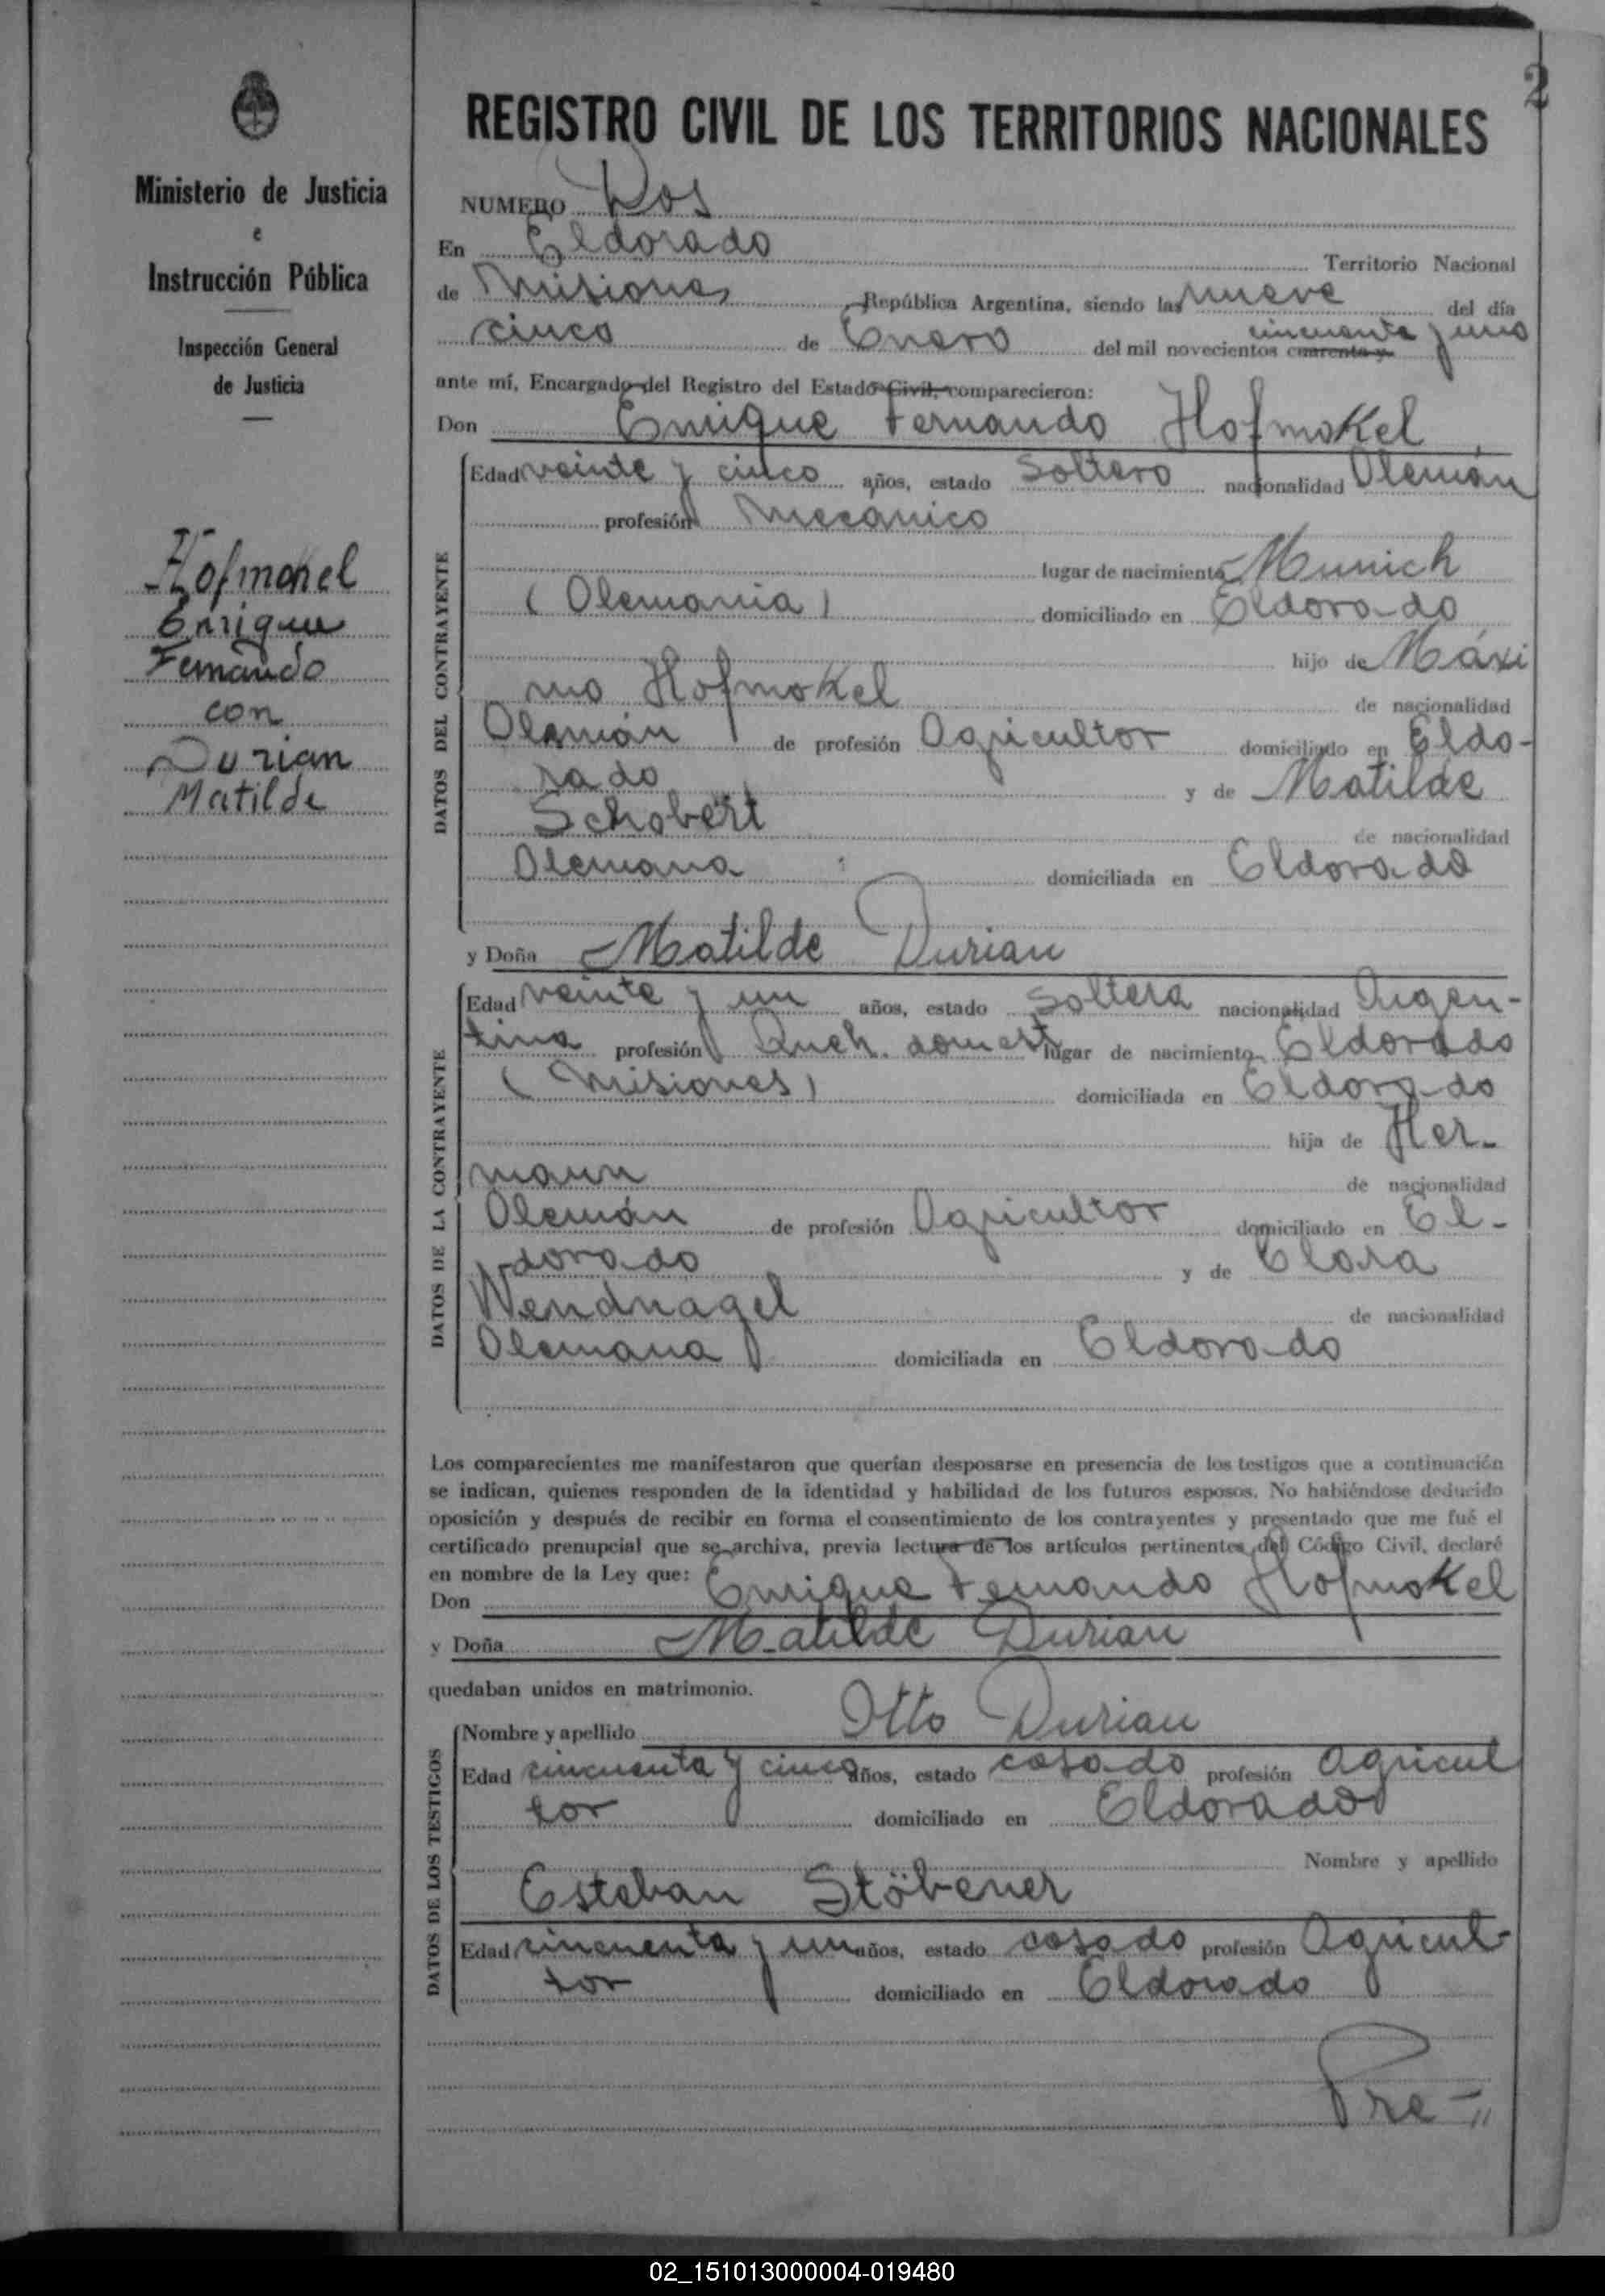 2
REGISTRO CIVIL DE LOS TERRITORIOS NACIONALES
Ministerio de Justicia
e
Instrucción Pública
Inspección General
de Justicia
Hofmokel
Enrique
Fernando
con
Durian
Matilde
NUMERO Dos
En Eldorado Territorio Nacional
de Misiones, República Argentina, siendo las nueve del día
cinco de Enero del mil novecientos cuarenta y cincuenta y uno
ante mí, Encargado del Registro del Estado Civil, comparecieron:
Don Enrique Fernando Hofmokel
DATOS DEL CONTRAYENTE
Edad veinte y cinco años, estado Soltero nacionalidad Alemán
profesión Mecanico
lugar de nacimiento Munich
(Alemania) domiciliado en Eldorado
hijo de Máxi
mo Hofmokel de nacionalidad
Alemán de profesión Agricultor domiciliado en Eldo-
rado y de Matilde
Schobert de nacionalidad
Alemana domiciliada en Eldorado
y Doña Matilde Durian
DATOS DE LA CONTRAYENTE
Edad veinte y un años, estado Soltera nacionalidad Argen-
tina profesión Queh. domest lugar de nacimiento Eldorado
(Misiones) domiciliada en Eldorado
hija de Her-
mann de nacionalidad
Alemán de profesión Agricultor domiciliado en El-
dorado y de Clara
Wendnagel de nacionalidad
Alemana domiciliada en Eldorado
Los comparecientes me manifestaron que querían desposarse en presencia de los testigos que a continuación
se indican, quienes responden de la identidad y habilidad de los futuros esposos. No habiéndose deducido
oposición y después de recibir en forma el consentimiento de los contrayentes y presentado que me fué el
certificado prenupcial que se archiva, previa lectura de los artículos pertinentes del Código Civil, declaré
en nombre de la Ley que:
Don Enrique Fernando Hofmokel
y Doña Matilde Durian
quedaban unidos en matrimonio.
DATOS DE LOS TESTIGOS
Nombre y apellido Otto Durian
Edad cincuenta y cinco años, estado casado profesión Agricul
tor domiciliado en Eldorado
Nombre y apellido
Esteban Stöbener
Edad cincuenta y un años, estado casado profesión Agricul-
tor domiciliado en Eldorado
Pre-//
02_151013000004-019480